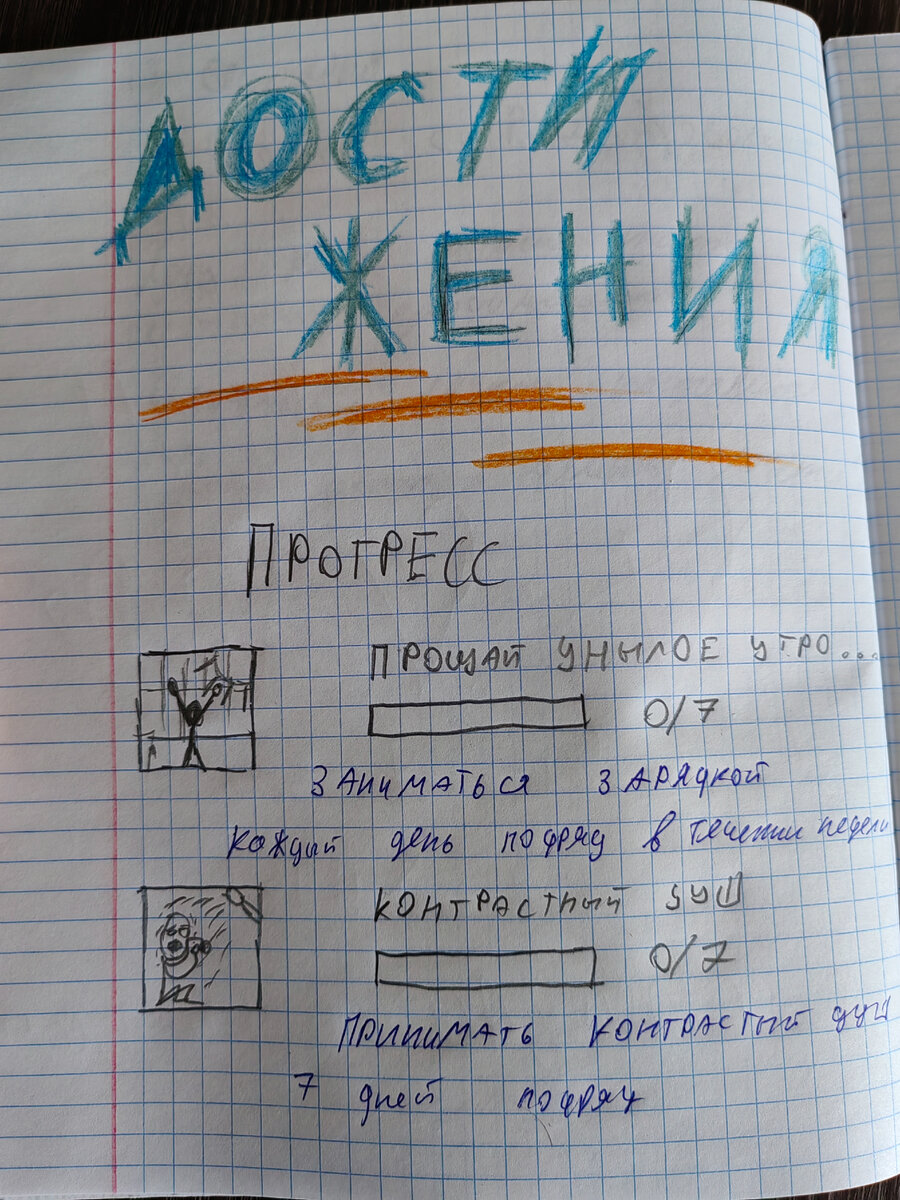 ДОСТИ
ЖЕНИЯ
ПРОГРЕСС
ПРОЩАЙ УНЫЛОЕ УТРО...
0/7
ЗАНИМАТЬСЯ ЗАРЯДКОЙ
каждый день подряд в течении недели
КОНТРАСТНЫЙ ДУШ
0/7
ПРИНИМАТЬ КОНТРАСТНЫЙ ДУШ
7 дней подряд